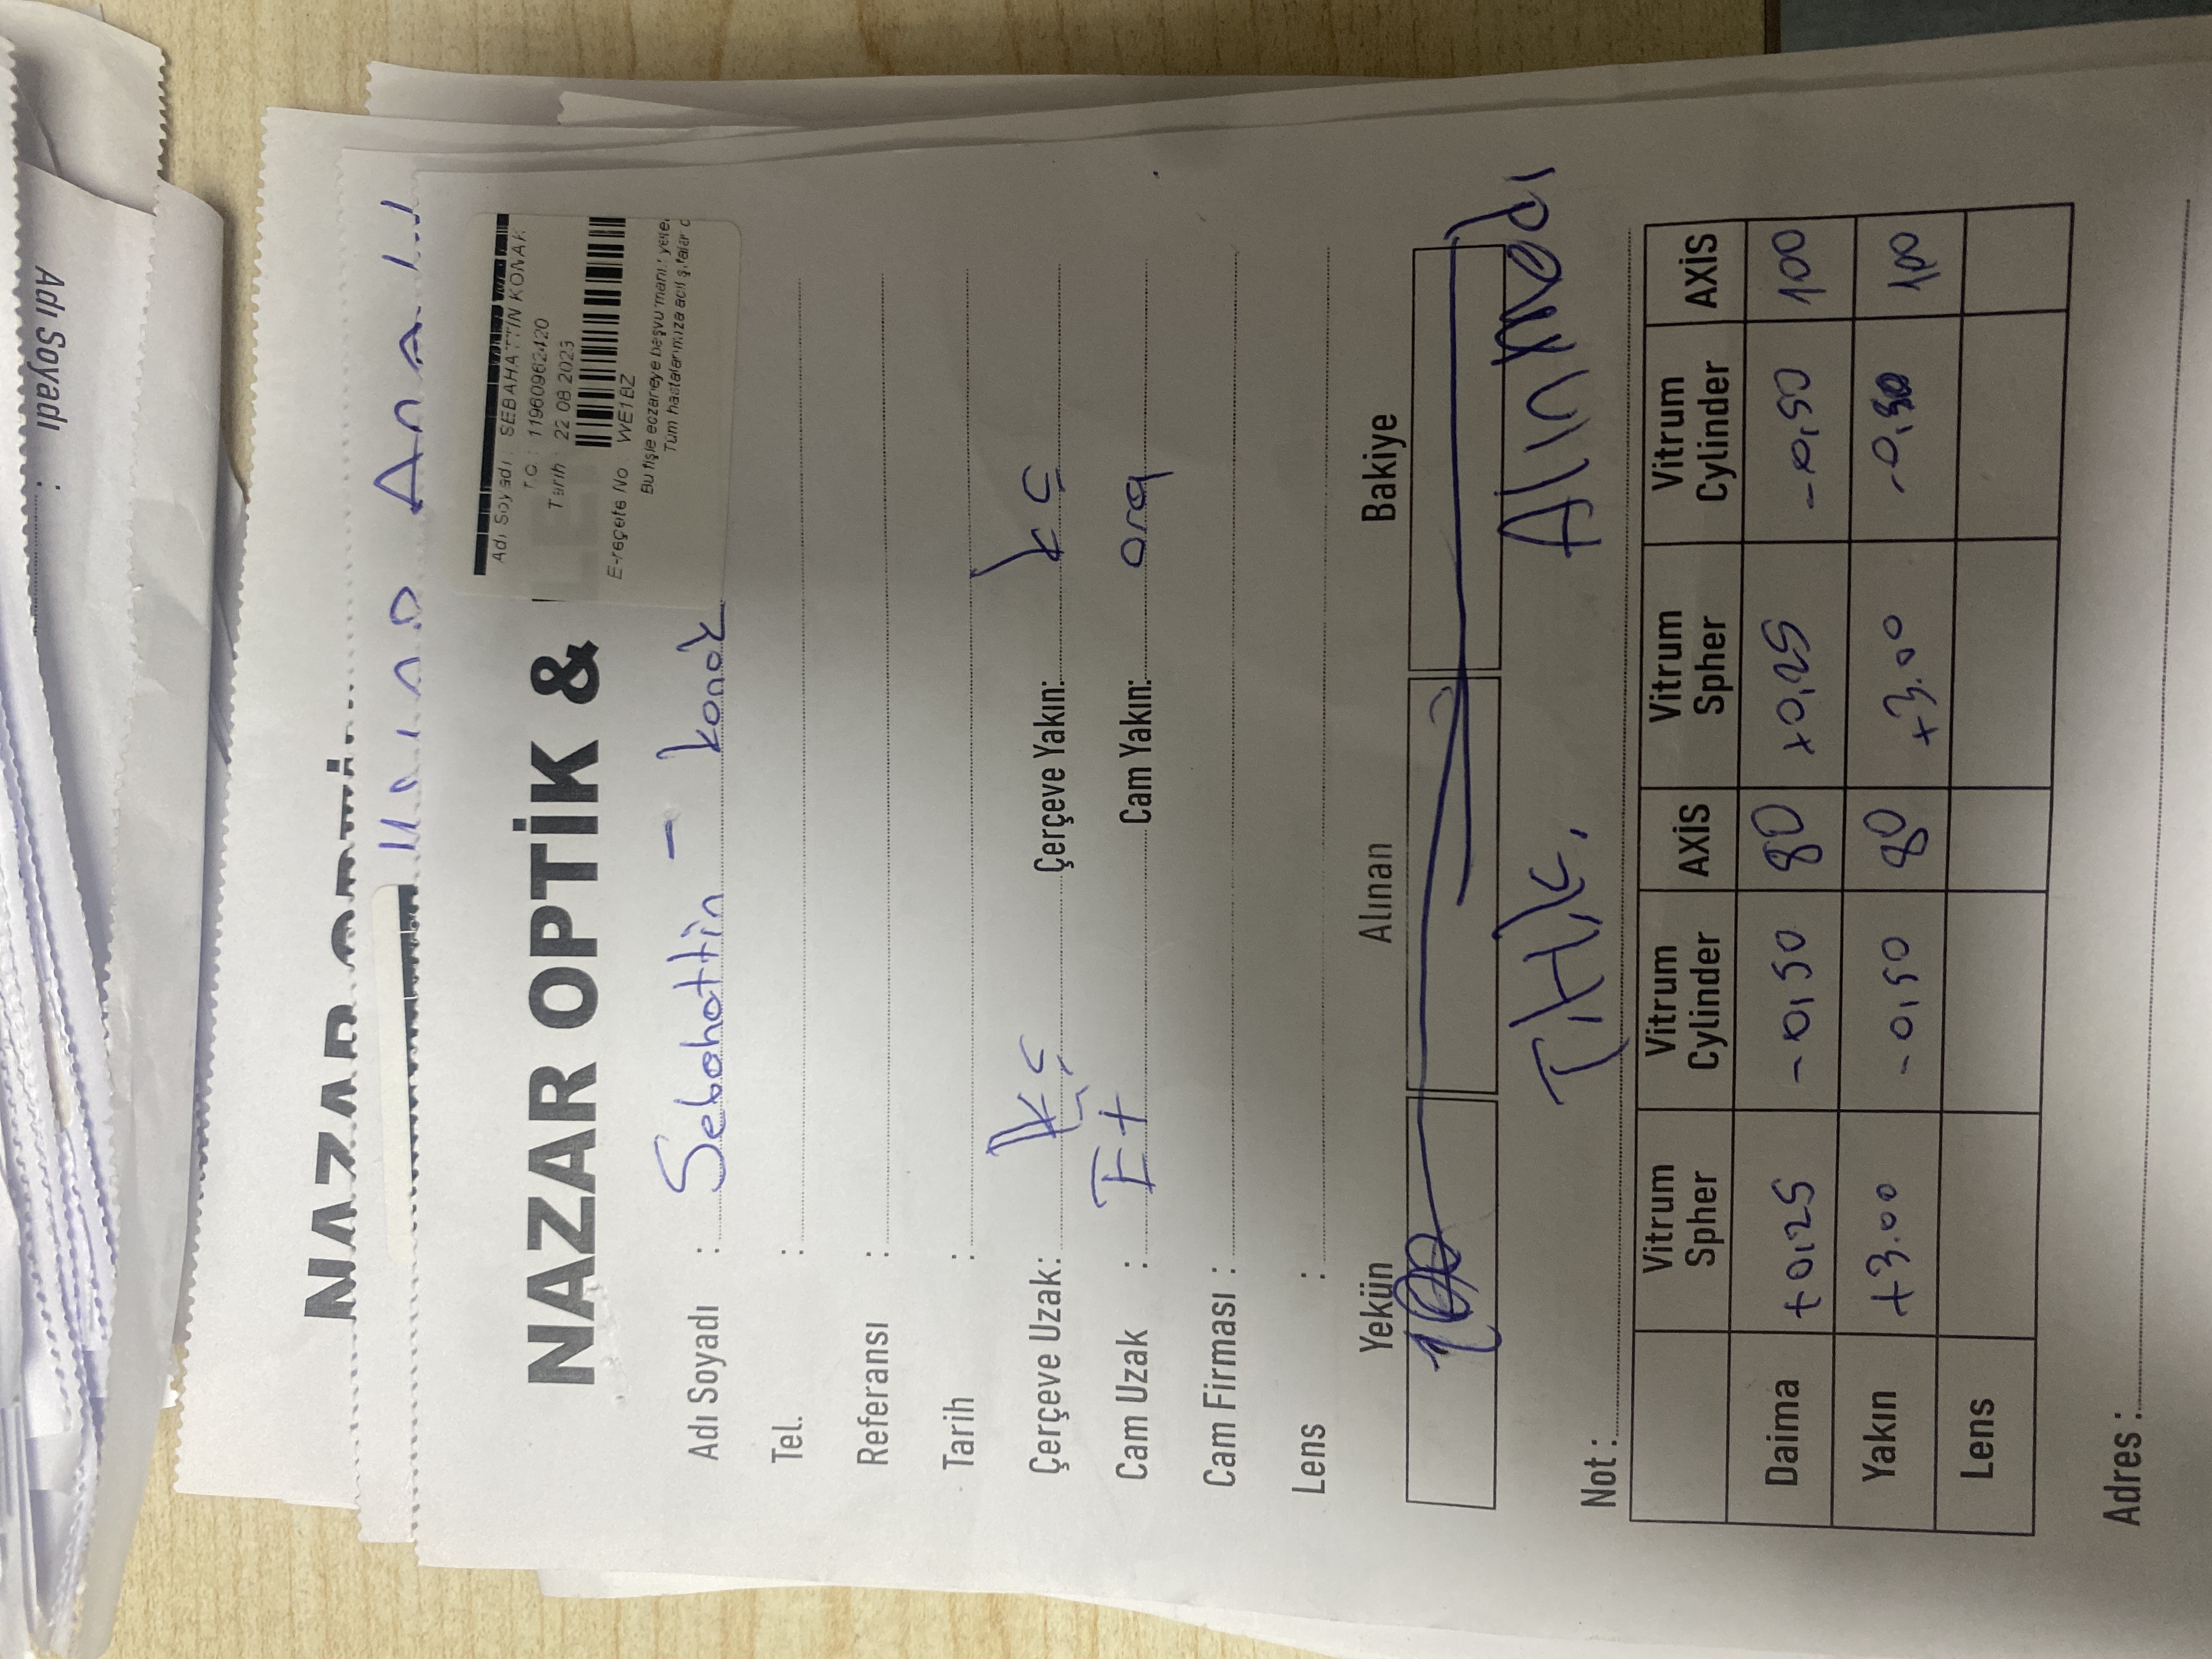 Adı Soyadı :
NAZAR OPTİK
NAZAR OPTİK &
Adı Soyadı : SEBAHATTİN KONAK
T.C : 11960962420
Tarih : 22.08.2023
E-reçete No : WE1BZ
Bu fişle eczaneye başvurmanız
Tüm hastalarımıza acil şifalar d
Adı Soyadı : Sebahattin - konak
Tel. :
Referansı :
Tarih :
Çerçeve Uzak: kç Çerçeve Yakın: kç
Cam Uzak : Et Cam Yakın: org
Cam Firması :
Lens :
Yekün Alınan Bakiye
100
T.H.K. Alınmadı
Not :
Vitrum Spher Vitrum Cylinder AXİS Vitrum Spher Vitrum Cylinder AXİS
Daima +0,25 -0,50 80 +0,25 -0,50 100
Yakın +3.00 -0,50 80 +3.00 -0,50 100
Lens
Adres :